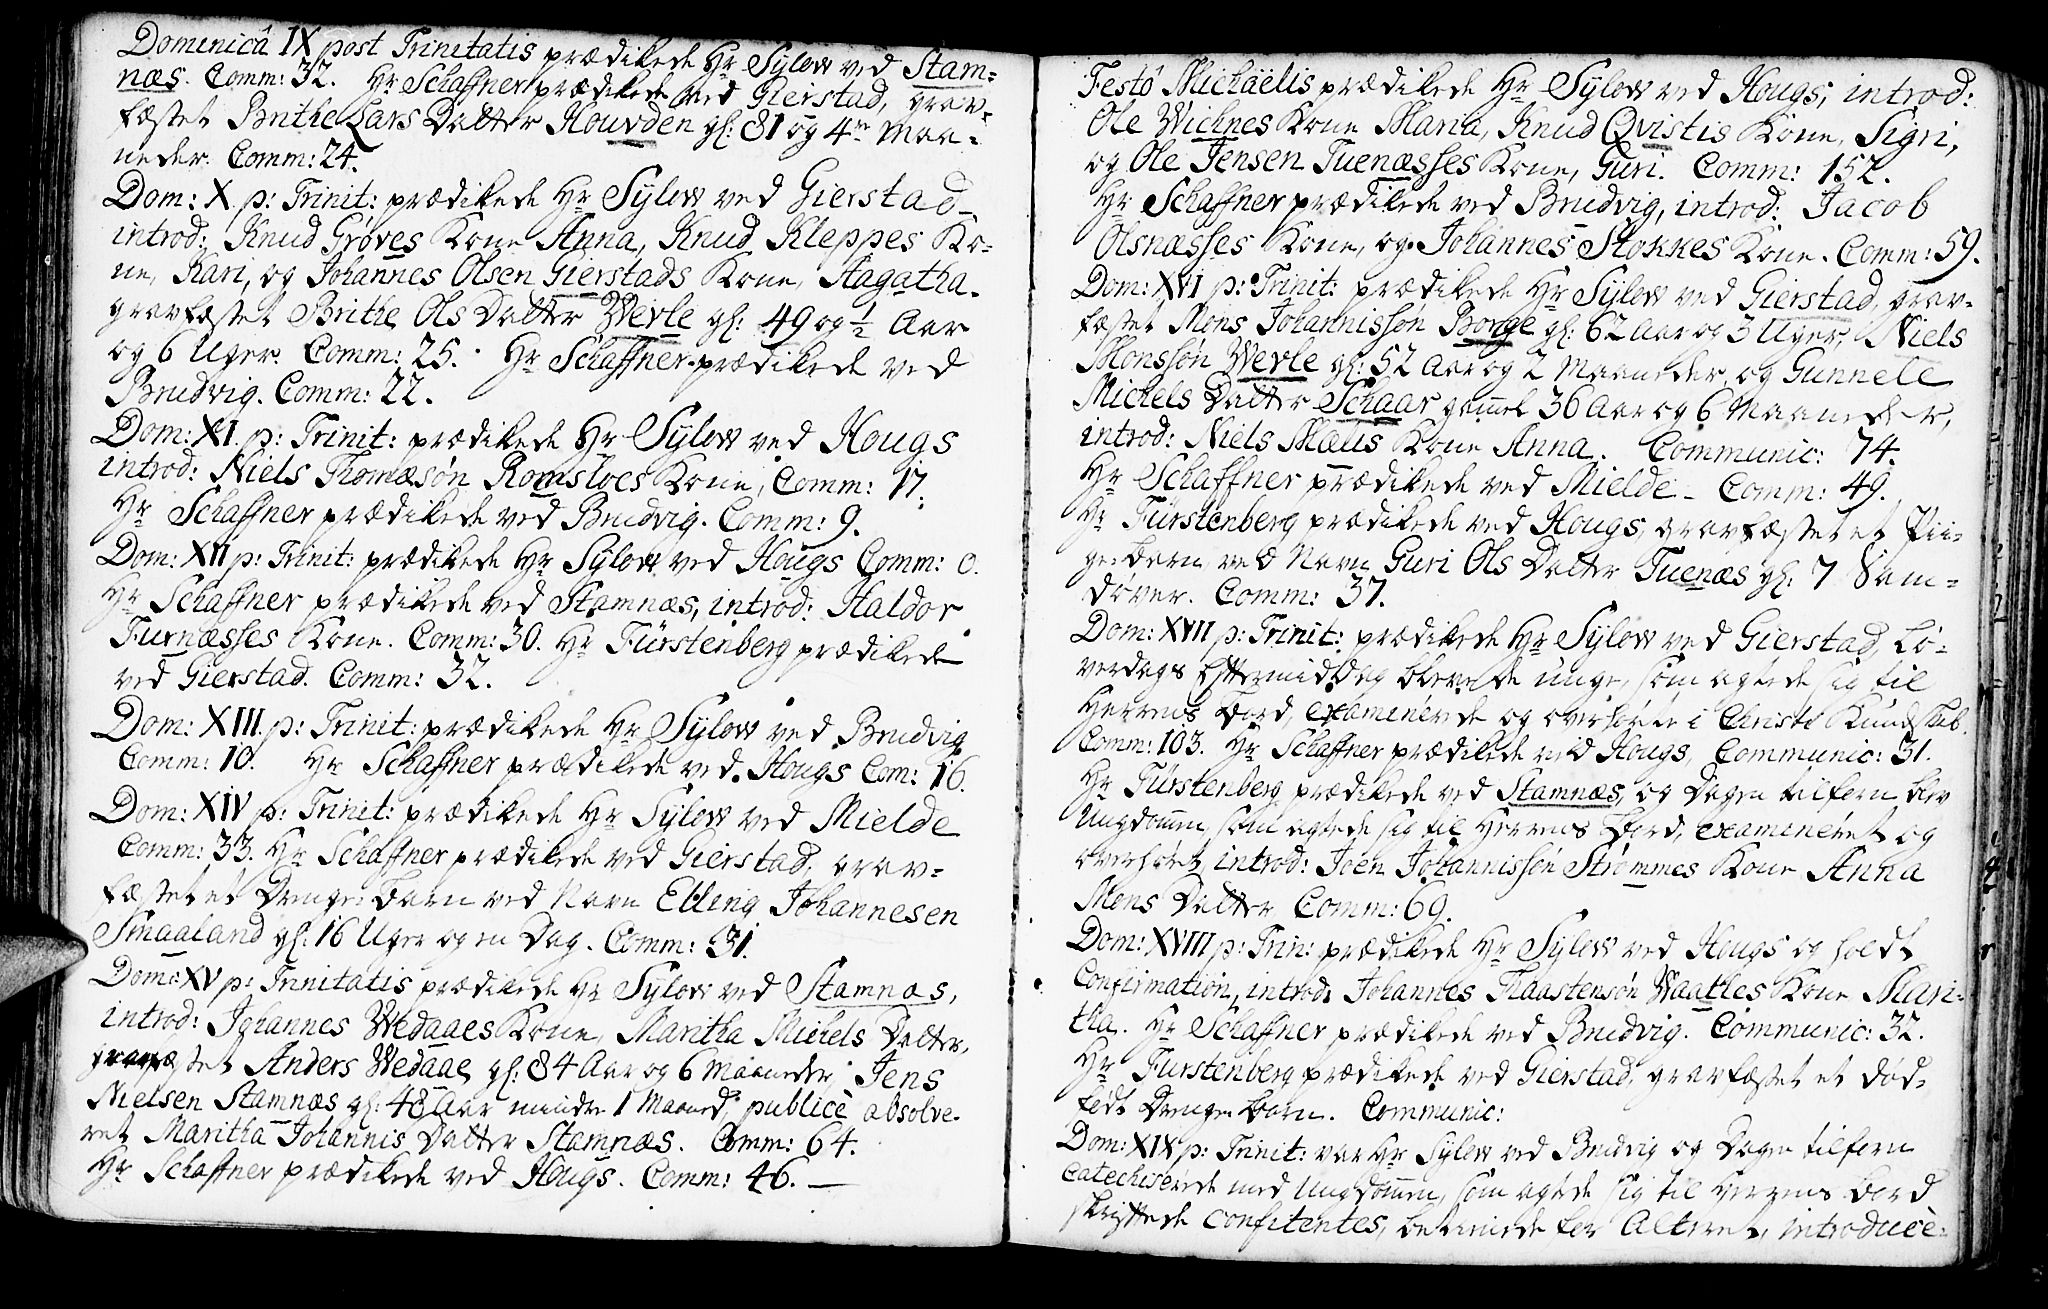 Domenicâ IX post Trinitatis prædikede Hr Sylow ved Stam-
næs. Comm: 32. Hr Schaffner prædikede ved Gierstad, grav-
fæstet Brithe Lars Datter Houvden gl: 81 og 4re Maa-
neder. Comm: 24.
Dom: X. p: Trinit: prædikede Hr Sylow ved Gierstad
introd: Knud Gröves Kone Anna, Knud Kleppes Ko-
ne, Kari, og Johannes Olsen Gierstads Kone, Aagatha.
gravfæstet Brithe Ols Datter Werle gl: 49 og ½ Aar
og 6 Uger. Comm: 25. Hr Schaffner prædikede ved
Brudvig. Comm: 22.
Dom: XI. p: Trinit: prædikede Hr Sylow ved Hougs
introd: Niels Thomæsøn Romsloes Kone, Comm: 17.
Hr Schaffner prædikede ved Brudvig. Comm: 9.
Dom: XII p: Trinit: prædikede Hr Sylow ved Hougs Comm: 0.
Hr Schaffner prædikede ved Stamnæs, introd: Haldor
Furnæsses Kone. Comm: 30. Hr Fürstenberg prædikede
ved Gierstad. Comm: 32.
Dom: XIII. p: Trinit: prædikede Hr Sylow ved Brudvig
Comm: 10. Hr Schaffner prædikede ved Hougs Com: 16.
Dom: XIV p: Trinit: prædikede Hr Sylow ved Mielde
Comm: 33. Hr Schaffner prædikede ved Gierstad, grav-
fæstet et Drenge-Barn ved Navn Elling Johannesen
Smaaland gl: 16 Uger og en Dag. Comm: 31.
Dom: XV p: Trinitatis prædikede Hr Sylow ved Stamnæs,
introd: Johannes Wedaaes Kone, Maritha Michels Datter,
gravfæstet Anders Wedaae gl: 84 Aar og 6 Maaneder, Jens
Nielsen Stamnæs gl: 48 Aar mindre 1 Maaned, publicè absolve-
ret Maritha Johannis Datter Stamnæs. Comm: 64.
Hr Schaffner prædikede ved Hougs. Comm: 46.
Festô Michaëlis prædikede Hr Sylow ved Hougs, introd:
Ole Wichnes Kone Maria, Knud Qvistis Kone, Sigri,
og Ole Jensen Tuenæsses Kone, Guri. Comm: 152.
Hr Schaffner prædikede ved Brudvig, introd: Jacob
Olsnæsses Kone, og Johannes Stokkes Kone. Comm: 59.
Dom: XVI p: Trinit: prædikede Hr Sylow ved Gierstad, grav-
fæstet Mons Johannissøn Borge gl: 62 Aar og 3 Uger, Niels
Monssøn Werle gl: 52 Aar og 2 Maaneder, og Gunnele
Michels Datter Schaar gam̄el 36 Aar og 6 Maaneder,
introd: Niels Mælis Kone Anna. Communic: 74.
Hr Schaffner prædikede ved Mielde. Comm: 49.
Hr Fürstenberg prædikede ved Hougs, gravfæstet et Pii-
ge-Barn ved Navn Guri Ols Datter Tuenæs gl: 7 Sam-
døver. Comm: 37.
Dom: XVII p: Trinit: prædikede Hr Sylow ved Gierstad, Lö-
verdags Eftermiddag bleve de unge, som agtede sig til
Herrens Bord, examinerede og overhørte i Christi Kundskab.
Comm: 103. Hr Schaffner prædikede ved Hougs, Communic: 31.
Hr Fürstenberg prædikede ved Stamnæs, og Dagen tilforn blev
Ungdom̄en, som agtede sig til Herrens Bord, examineret og
overhørt, introd: Joen Johannissøn Strømmes Kone Anna
Mons Datter, Comm: 69.
Dom: XVIII p: Trin: prædikede Hr Sylow ved Hougs og holdt
Confirmation, introd: Johannes Haastensøn Waatles Kone Mari-
tha. Hr Schaffner prædikede ved Brudvig. Communic: 32.
Hr Fürstenberg prædikede ved Gierstad, gravfæstet et død-
født Drenge-Barn. Communic:
Dom: XIX p: Trinit: var Hr Sylow ved Brudvig og Dagen tilforn
Catechiserede med Ungdom̄en, som agtede sig til Herrens Bord
skriftede confitentes, betiende for Alteret, introducè-